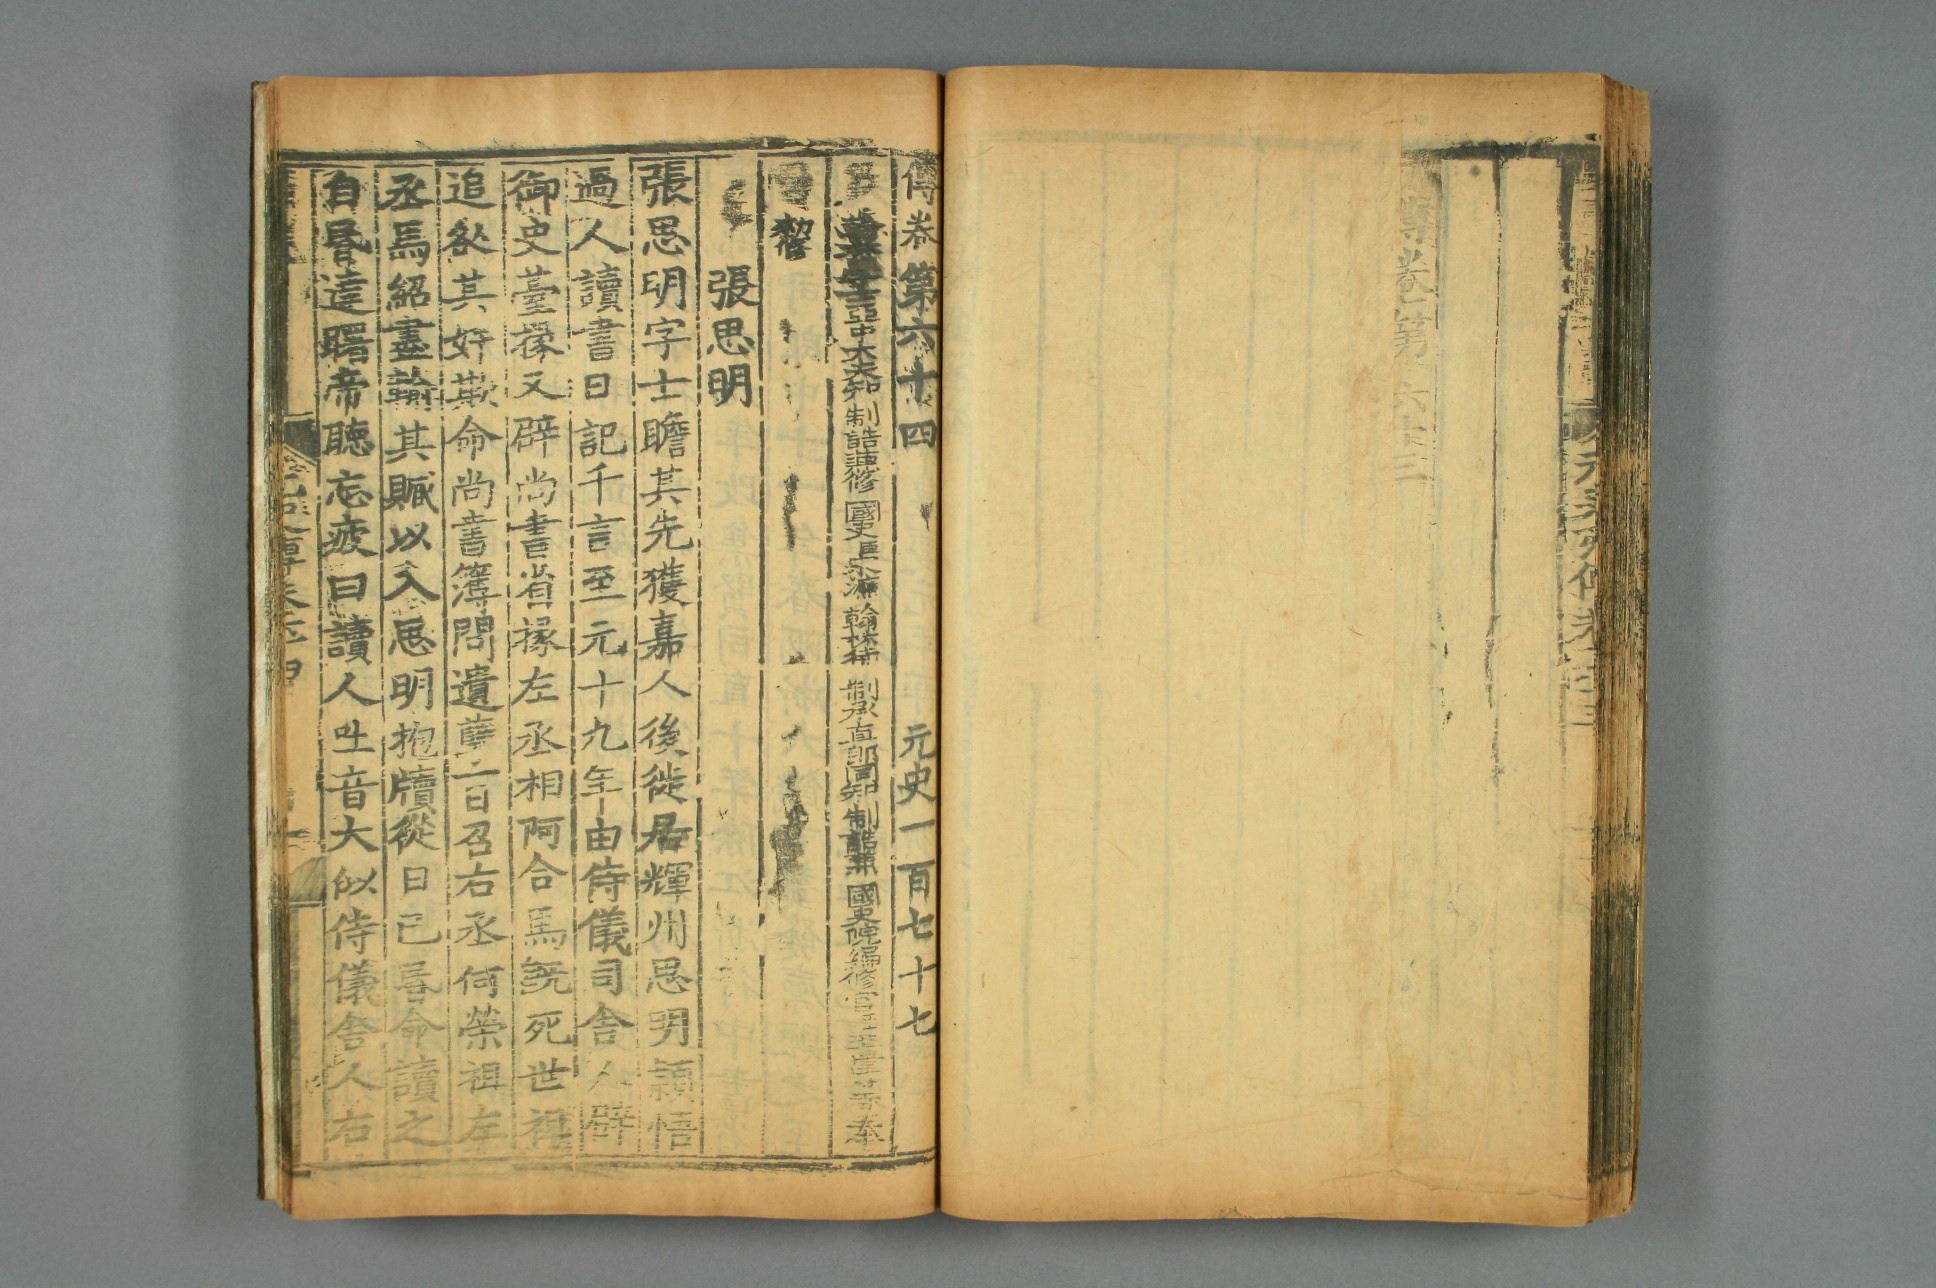 卷第六十三
元史列傳卷六十三
傳卷第六十四 元史一百七十七
亞中大夫知制誥兼修國史臣宋濂翰林待制承直郎同知制誥兼國史院編修官 奉
勑修
張思明
張思明字士瞻其先獲嘉人後徙居輝州思明穎悟
過人讀書日記千言至元十九年由侍儀司舍人辟
御史臺掾又辟尚書省掾左丞相阿合馬既死世祖
追咎其奸欺命尚書簿問遺孽一日召右丞何榮祖左
丞馬紹盡輸其贓以入思明抱牘從日已昏命讀之
自昏達曙帝聽忘疲曰讀人吐音大似侍儀舍人右
元史列傳卷六十四